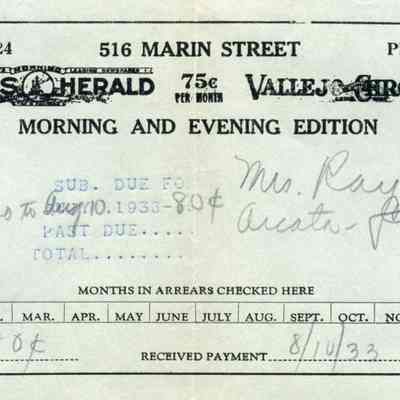 24 516 MARIN STREET P
S HERALD 75¢ PER MONTH VALLEJO CHRO
MORNING AND EVENING EDITION
SUB. DUE FO
to Aug 10.1933-80¢
PAST DUE.....
TOTAL........
Mrs. Ray
Arcata
MONTHS IN ARREARS CHECKED HERE
MAR. APR. MAY JUNE JULY AUG. SEPT. OCT. NO
0¢ RECEIVED PAYMENT 8/10/33